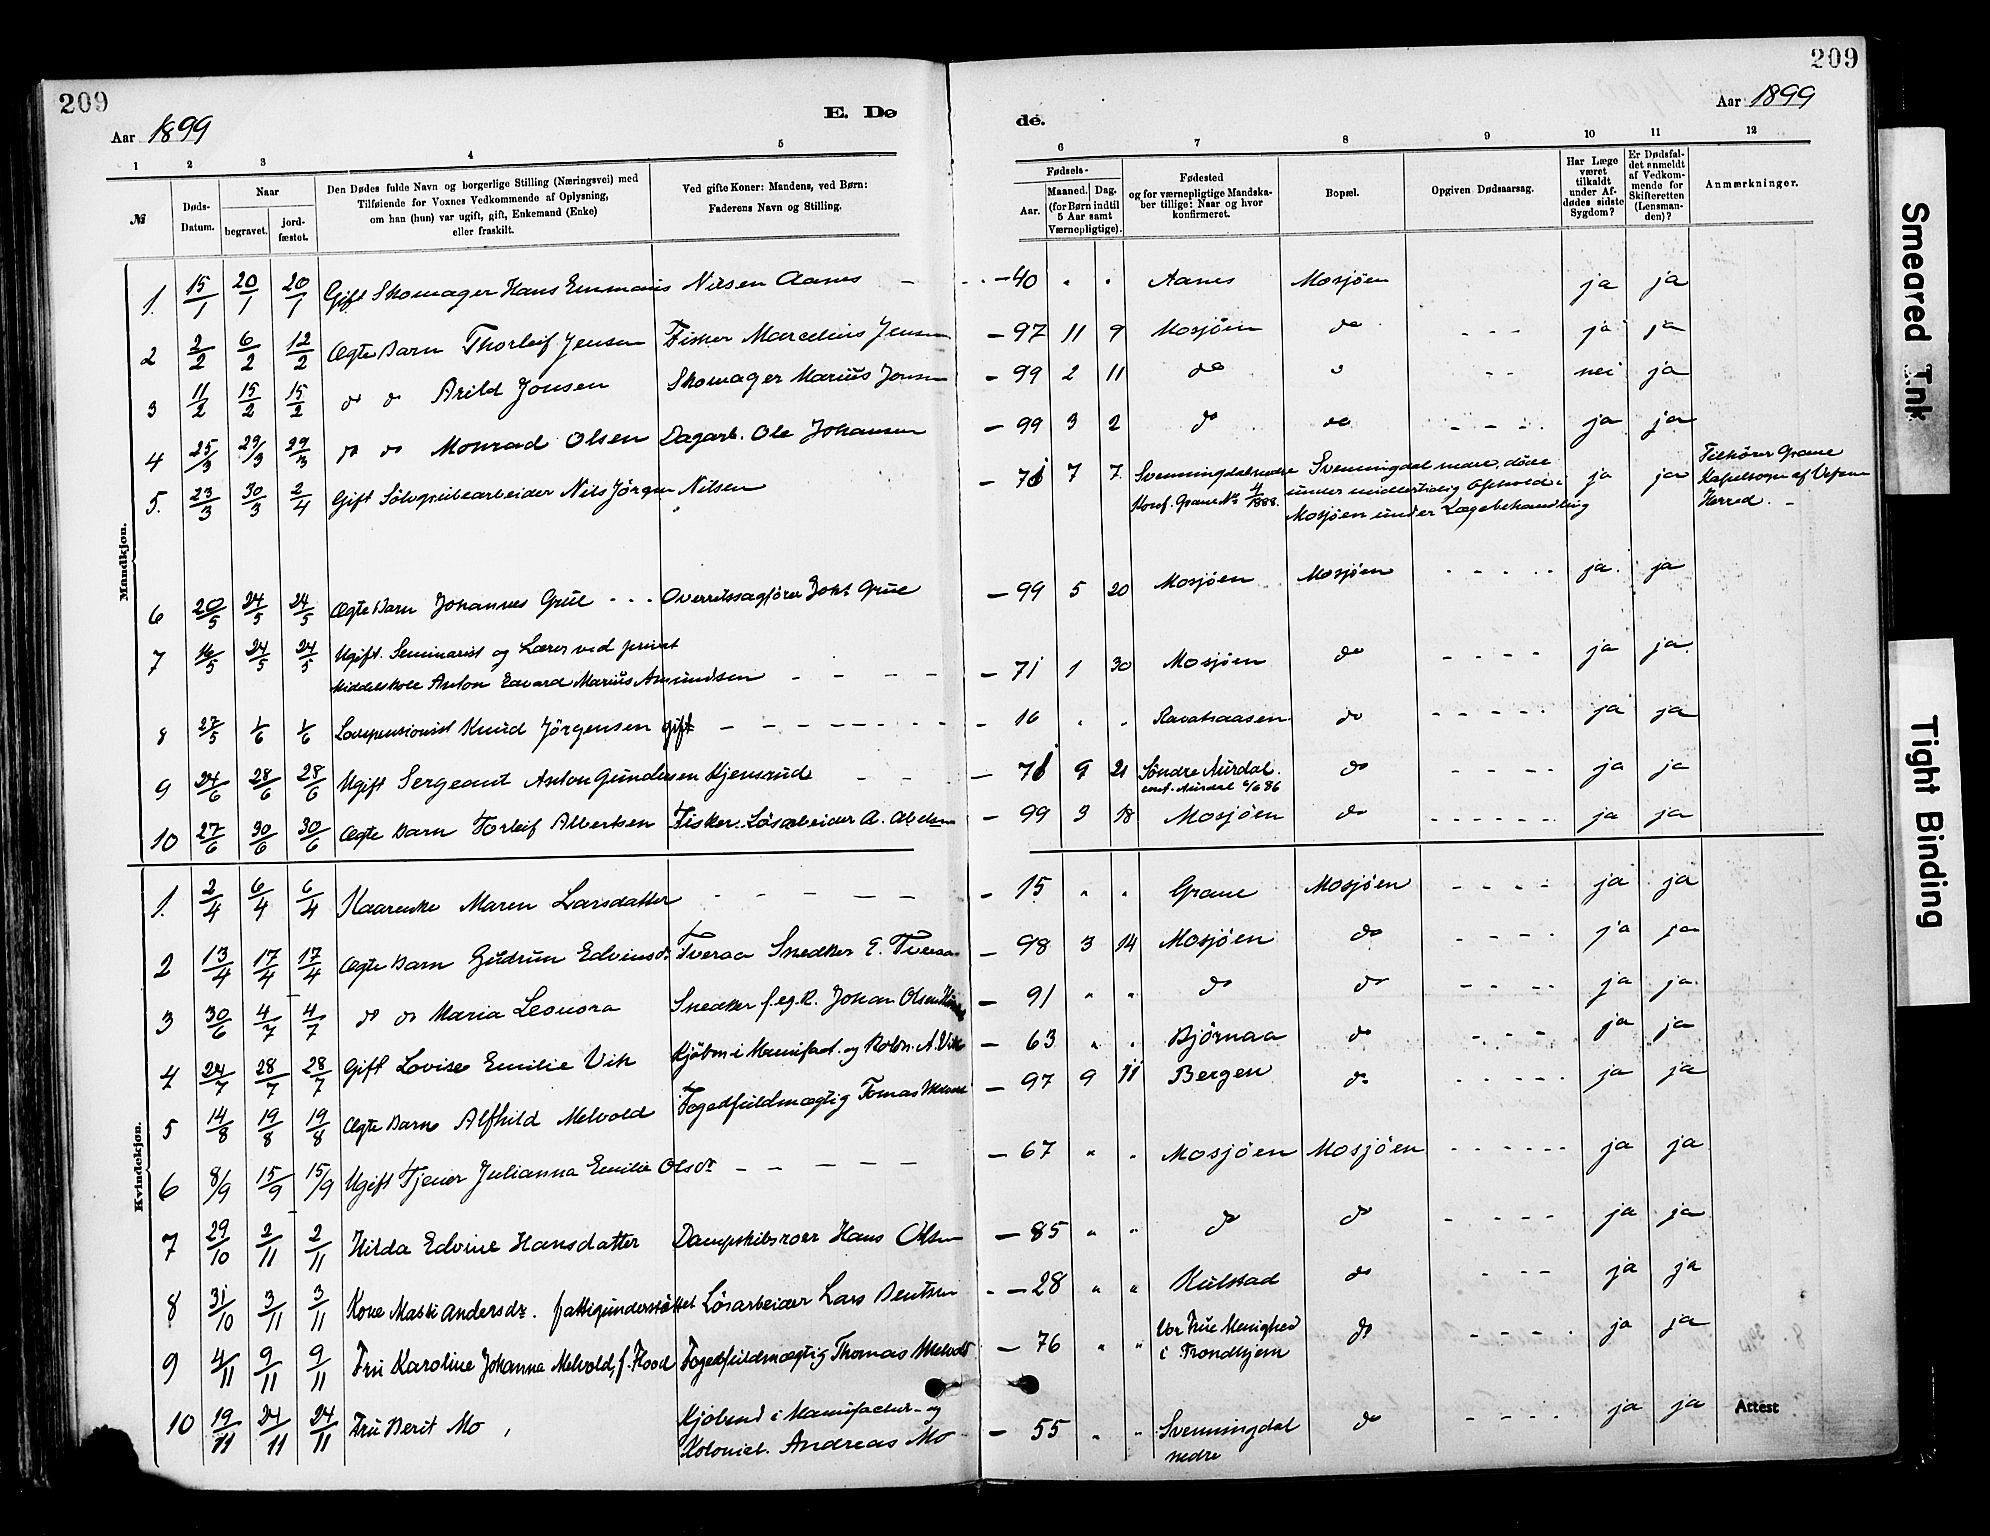 209
209
Aar 1899
E. Dø
de.
Aar 1899
1 2 3 4 5 6 7 8 9 10 11 12
№
Døds-Datum.
Naar
begravet.
jord-fæstet.
Den Dødes fulde Navn og borgerlige Stilling (Næringsvei) med
Tilføiende for Voxnes Vedkommende af Oplysning,
om han (hun) var ugift, gift, Enkemand (Enke)
eller fraskilt.
Ved gifte Koner: Mandens, ved Børn:
Faderens Navn og Stilling.
Fødsels-
Aar.
Maaned. Dag.
(for Børn indtil
5 Aar samt
Værnepligtige).
Fødested
og for værnepligtige Mandska-
ber tillige: Naar og hvor
konfirmeret.
Bopæl.
Opgiven Dødsaarsag.
Har Læge
været
tilkaldt
under Af-
dødes sidste
Sygdom?
Er Dødsfal-
det anmeldt
af Vedkom-
mende for
Skifteretten
(Lensman-
den)?
Anmærkninger.
Mandkjøn.
1. 15/1 20/1 20/1 Gift Skomager Hans Emmanis Nilsen Aanes - 40 " " Aanes Mosjøen ja ja
2 2/2 6/2 12/2 Ægte Barn Thorleif Jensen Fisker Marcelius Jensen - 97 11 9 Mosjøen do - - - ja ja
3 11/2 15/2 15/2 do do Arild Jonsen Skomager Marius Jonsen - 99 2 11 do " - - nei ja
4 25/3 29/3 29/3 do do Monrad Olsen Dagarb. Ole Johansen - 99 3 2 do do - - - - ja ja
5. 23/3 30/3 2/4 Gift Sølvgrubearbeider Nils Jörgen Nilsen - 71 7 7. Svenningdal nedre Svenningdal nedre, döde ja ja Tilhörer Grane
Konf. Grane 1888. under midlertidig Ophold i Kapelsogn af Vefsen
Mosjöen under Lægebehandling Herred. -
6 20/5 24/5 24/5 Ægte Barn Johannes Grue - - - Overretssagfører Johs Grue - 99 5 20 Mosjöen Mosjöen - - - - - ja. ja
7 16/5 24/5 24/5 Ugift. Seminarist og Lærer ved privat
Middelskole Anton Edvard Marius Amundsen - - - - - 71 1 30 Mosjöen do - - - - ja ja
8 27/5 1/6 1/6 Knud Jörgensen gift - - - - - - - 16 " " do - - - - - ja ja
9 24/6 28/6 28/6 Ugift Sergeant Anton Gundersen Kjensrud - - - - 71 9 21 Söndre Aurdal. do ja ja
conf. Aurdal 86
10 27/6 30/6 30/6 Ægte Barn Torleif Albertsen Fisker. Løsarbeider A. - 99 3 18 Mosjöen do - - - - - - ja ja
Kvindekjøn.
1. 2/4 6/4 6/4 Maren Larsdatter - - - - - 15 " " Grane Mosjöen - - - - ja ja
2 13/4 17/4 17/4 Ægte Barn Gudrun Edvinsdr Tveraa Snedker E. Tveraa - 98 3 14 Mosjöen do - - - - ja ja
3 30/6 4/7 4/7 do do Maria Leonora Snedker f. eg. R. Johan Olsen - 91 " " do do - - - - ja ja
4 24/7 28/7 28/7 Gift Lovise Emilie Vik Kjöbm i Manufact. og A. Vik - 63 " . Björnaa do - - - ja ja
5 14/8 19/8 19/8 Ægte Barn Alfhild Melvold Fogedfuldmægtig Tomas Melvold - 97 9 11 Bergen do - - - - - ja ja
6 8/9 15/9 15/9 Ugift Tjener Julianna Emilie Olsdr - - - - - - 67 " . Mosjöen Mosjöen - - - - - ja ja
7 29/10 2/11 2/11 Hilda Edvine Hansdatter Dampskibsroer Hans Olsen - 85 " " do do - - - - - ja ja
8 31/10 3/11 3/11 Kone Andersdr. fattigunderstöttet Løsarbeider Lars Bentsen - 28 " " Kulstad do - - - ja ja
9 4/11 9/11 9/11 Fru Karoline Johanna Melvold, f. Flood Fogedfuldmægtig Thomas Melvold - 76 " " Vor Frue Menighed do - - - - ja ja
i Trondhjem
10 19/11 24/11 24/11 Fru Berit Mo , Kjöbmd i Manufactur- og
Kolonial. Andreas Mo - 55 " " Svenningdal do - - - - ja ja Attest
nedre
Smeared Ink
Tight Binding